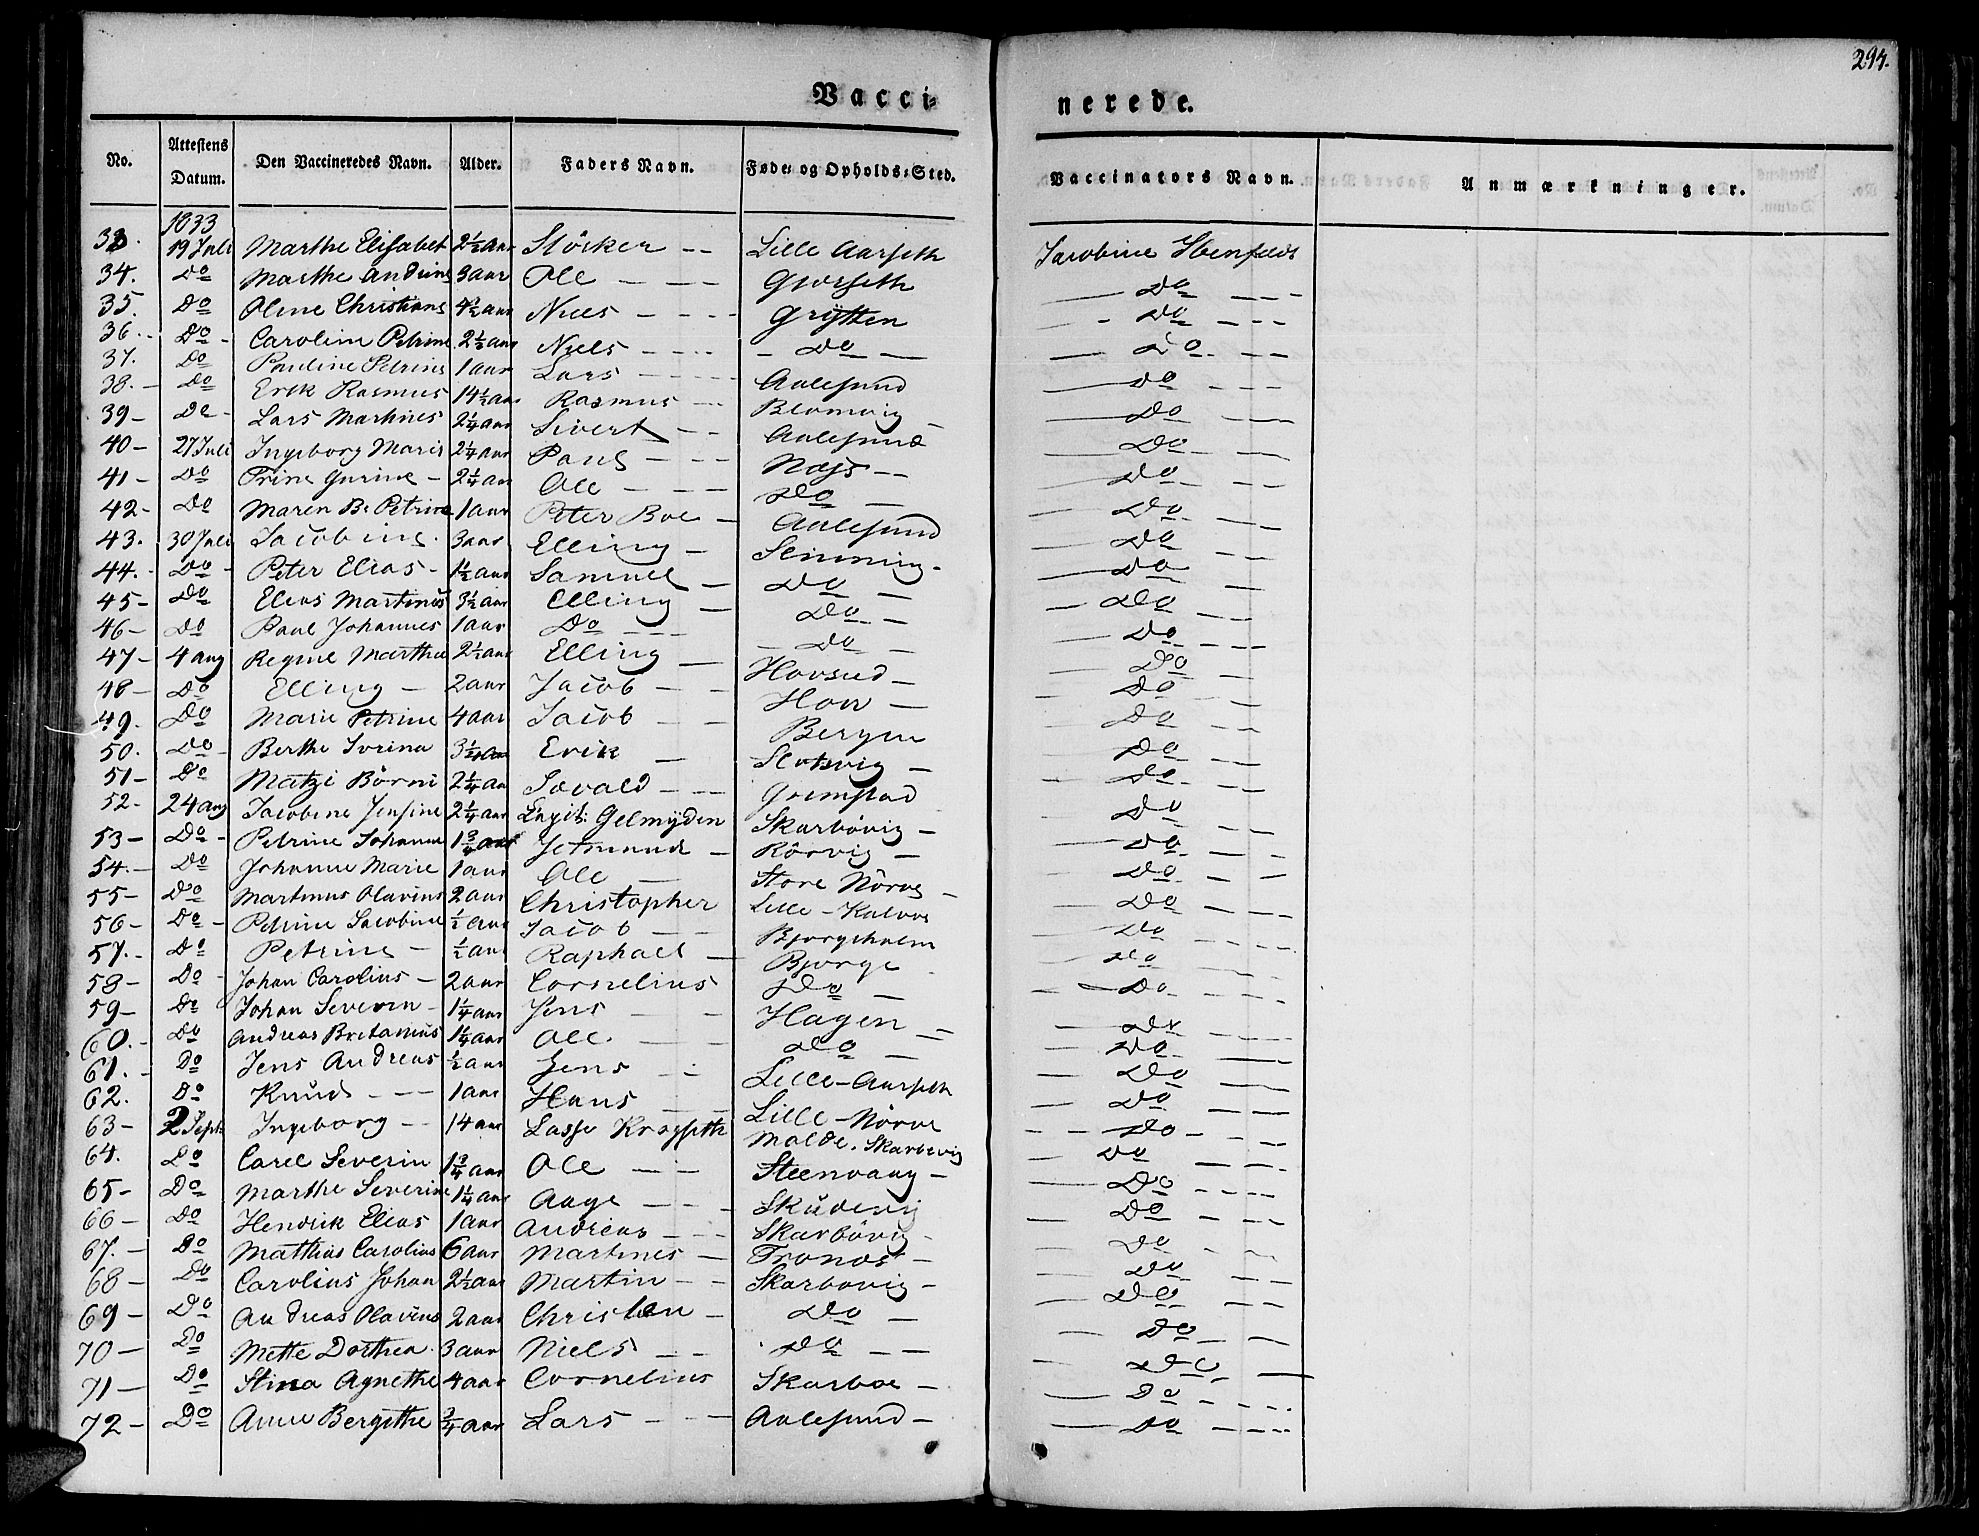 294.
Vacci-
nerede.
No. Attestens Datum. Den Vaccineredes Navn. Alder. Faders Navn. Føde- og Opholds-Sted. Vaccinators Navn. Anmærkninger.
1833
33. 19 Juli Marthe Elisabet 2½ aar Stöcker -- Lille Aarseth Jacobine
34. Do Marthe Andrine 3 aar Ole --- Gjerseth Do
35. Do Oline Christiane 4½ aar Niels --- Grÿtten Do
36. Do Caroline Petrine 2½ aar Niels --- Do Do
37. Do Pauline Petrine 1 aar Lars --- Aalesund Do
38. Do Erik Rasmus 14½ aar Rasmus -- Blomvig Do
39 - Do Lars Martines 2¼ aar Sivert -- Aalesund Do
40 - 27 Juli Ingeborg Marie 2¼ aar Paul --- Do
41 - Do Trine Gurine - 2¼ aar Ole --- Do Do
42 - Do Maren B. Petrine 1 aar Peter Boe - Aalesund Do
43. 30 Juli Jacobine 3 aar Elling - Slinning - Do
44. Do Peter Elias - 1½ aar Samuel - Do Do
45 - Do Elias Martinus 3½ aar Elling - Do Do
46 - Do Paul Johannes 1 aar Do --- Do Do
47 - 4 aug Regine Marthea 2½ aar Elling - Hovsud - Do
48 - Do Elling - 2 aar Jacob -- How - Do
49. Do Marie Petrine 4 aar Jacob -- Bergen Do
50. Do Berthe Ivrina Erik - Slotsvig - Do
51 - Do Matzi Börni 2¼ aar Sevald -- Grimstad Do
52 - 24 aug Jacobine Jensine 2¼ aar Gelmÿden Skarbövig - Do
53 - Do Petrine Johanne 1¾ aar Jetmund - Rörvig - Do
54. Do Johanne Marie 1 aar Ole - Store Nörve - Do
55 - Do Martinus Olavius 2 aar Christopher Lille - Kalvøe Do
56 - Do Petrine Jacobine ½ aar Jacob -- Bjorgeholm Do
57. Do Petrine - ½ aar Raphael - Bjorge Do
58 - Do Johan Carolius - 2 aar Cornelius Do Do
59 - Do Johan Severin - 1¼ aar Jens -- Hagen - Do
60. Do Andreas Bretanius 1¼ aar Ole. -- Do Do
61. Do Jens Andreas ½ aar Jens -- Lille-Aarseth Do
62. Do Knud --- 1 aar Hans -- Lille-Nörve Do
63 - 2 Septr Ingeborg -- 14 aar Lasse Molde. Skarbevig Do
64. Do Carel Severin 1¾ aar Ole --- Steenvaag - Do
65 - Do Marthe Severine 1¼ aar Aage --- Skudevig Do
66 - Do Hendrik Elias 1 aar Andreas --- Skarbövig - Do
67. - Do Mathias Carolius 6 aar Martines - Tronæs - Do
68 - Do Carolius Johan 2½ aar Martin -- Skarbovig - Do
69 - Do Andreas Olavius 2 aar Christen - Do Do
70 - Do Mette Dorthea 3 aar Niels -- Do Do
71 - Do Stina Agnethe 4 aar Cornelius Skarboe - Do
72 - Do Anne Bergithe ¾ aar Lars --- Aalesund - Do